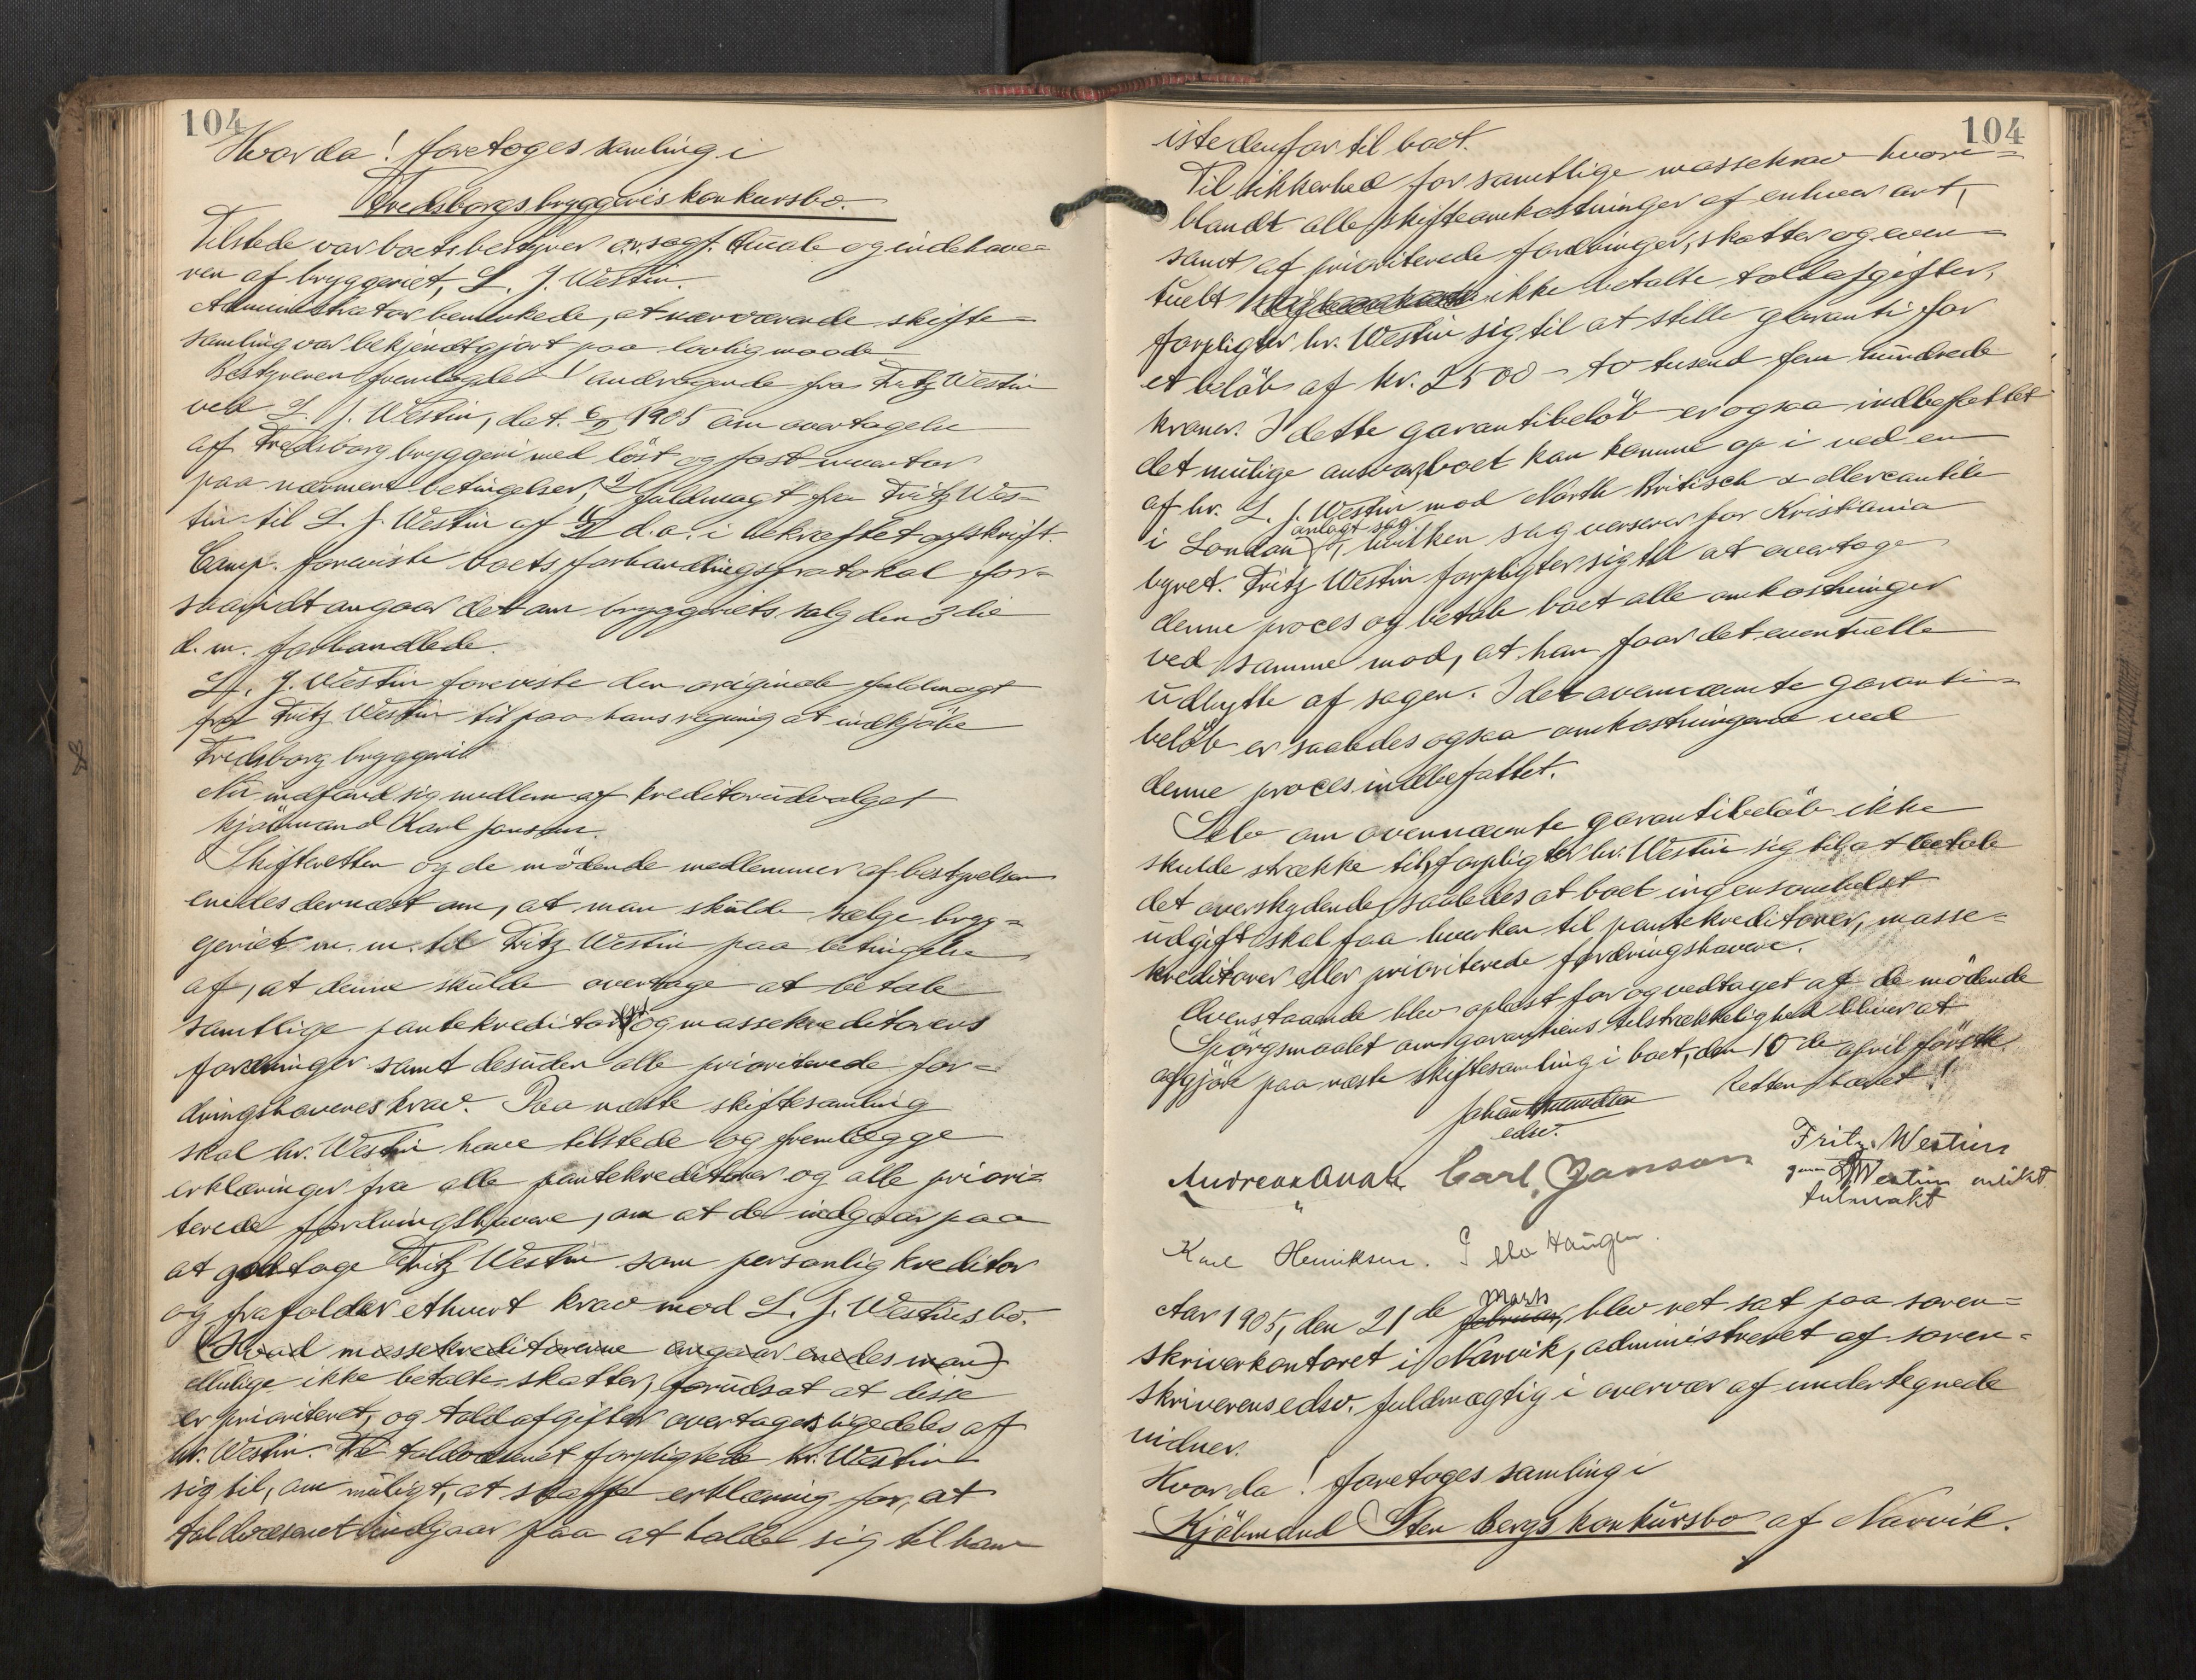 104
Hvorda! foretoges samling i
Fredsborgs bryggeris konkursbo.
Tilstede var boets bestyrer o.r.sagf. Quale og indehave=
ren af bryggeriet, L. J. Westin.
Administrator bemerkede, at nærværende skifte=
samling var bekjendtgjort paa lovlig maade
Bestyreren fremlagde 1 andragende fra Fritz Westin
ved L. J. Westin, dat. 1905 om overtagelse
af Fredsborg bryggeri med löst og fast inventar
paa nærmere betingelser, 2 fuldmagt fra Fritz Wes=
tin til L. J. Westin af d.a. i bekræftet afskrift.
Comp. foreviste boets forhandlingsprotokol for=
saavidt angaar det om bryggeriets salg den 3die
d. m. forhandlede.
L. J. Westin foreviste den originale fuldmagt
fra Fritz Westin til paa hans regning at indkjöbe
Fredsborg bryggeri
Nu indfandt sig medlem af kreditorudvalget
kjöbmand Karl Janson.
Skifteretten og de mödende medlemmer af bestyrelsen
enedes dernæst om, at man skulde sælge bryg=
geriet m. m. til Fritz Westin paa betingelse
af, at denne skulde overtage at betale
samtlige pantekreditorers og massekreditorers
fordringer samt desuden alle prioriterede for=
dringshaveres krav. Paa næste skiftesamling
skal hr. Westin have tilstede og fremlægge
erklæringer fra alle pantekreditorer og alle priori=
terede fordringshavere, om at de indgaar paa
at godtage Fritz Westin som personlig kreditor
og frafalder ethvert krav mod L. J. Westins bo.
(Hvad massekreditorerne angaar enedes man)
Mulige ikke betalte skatter, forudsat at disse
er prioriteret, og toldafgifter overtages ligedeles af
hr. Westin. Til toldvæsenet forpligtede hr. Westin
sig til, om muligt, at skaffe erklæring for, at
toldvæsenet indgaar paa at holde sig til ham
104
istedenfor til boet.
Til sikkerhed for samtlige massekrav hvori=
blandt alle skifteomkostninger af enhver art,
samt af prioriterede fordringer, skatter og even=
tuelt ikke betalte toldafgifter,
forpligter hr. Westin sig til at stille garanti for
et belöb af kr. 2500 - to tusend fem hundrede
kroner. I dette garantibelöb er ogsaa indbefattet
det mulige ansvar, boet kan komme op i ved en
af hr. L. J. Westin mod North Britisch & Mercantile
i London anlagt sag, hvilken sag verserer for Kristiania
byret. Fritz Westin forpligter sig til at overtage
denne proces og betale boet alle omkostninger
ved samme mod, at han faar det eventuelle
udbytte af sagen. I det ovennævnte garanti=
belöb er saaledes ogsaa omkostningerne ved
denne proces indbefattet.
Selv om ovennævnte garantibelöb ikke
skulde strække til, forpligter hr. Westin sig til at betale
det overskydende, saaledes at boet ingensomhelst
udgift skal faa hverken til pantekreditorer, masse=
kreditorer eller prioriterede fordringshavere.
Ovenstaaende blev oplæst for og vedtaget af de mödende
Spörgsmaalet om garantiens tilstrækkelighed bliver at
afgjöre paa næste skiftesamling i boet, den 10de april förstk.
Retten hævet!
edsv.
Andreas Quale Carl. Janson Fritz Westin
gnm LJWestin enlikt
fulmakt
Karl Henriksen. I Mo Haugen.
Aar 1905, den 21de februar, mars blev ret sat paa soren=
skriverkontoret i Narvik, administreret af soren=
skriverens edsv. fuldmægtig i overvær af undertegnede
vidner.
Hvorda! foretoges samling i
Kjöbmand Sten bergs konkursbo af Narvik.